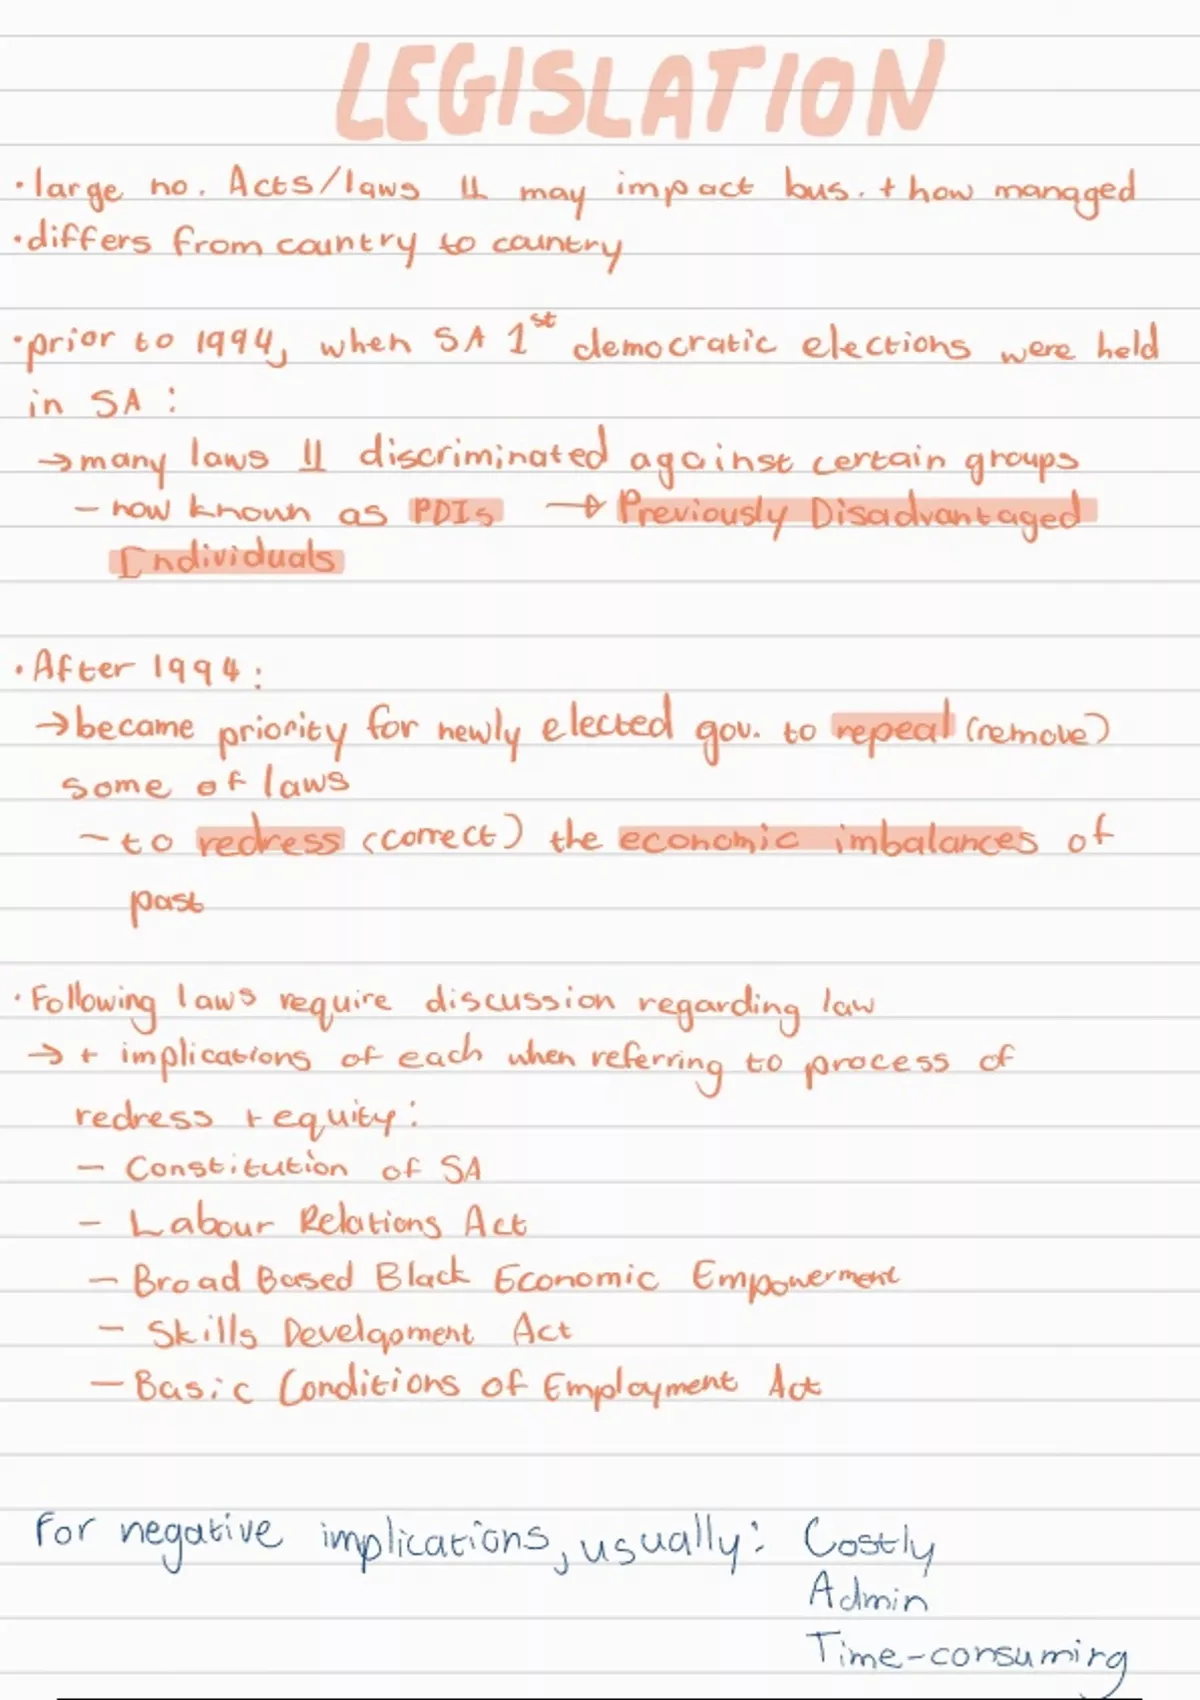 LEGISLATION
• large no. Acts/laws ⊥⊥ may impact bus. + how managed
• differs from country to country
• prior to 1994, when SA 1st democratic elections were held
in SA :
→ many laws ⊥⊥ discriminated against certain groups
- now known as PDIs → Previously Disadvantaged
Individuals
• After 1994 :
→ became priority for newly elected gov. to repeal (remove)
some of laws
- to redress (correct) the economic imbalances of
past
• Following laws require discussion regarding law
→ + implications of each when referring to process of
redress + equity :
- Constitution of SA
- Labour Relations Act
- Broad Based Black Economic Empowerment
- Skills Development Act
- Basic Conditions of Employment Act
For negative implications, usually : Costly
Admin
Time-consuming